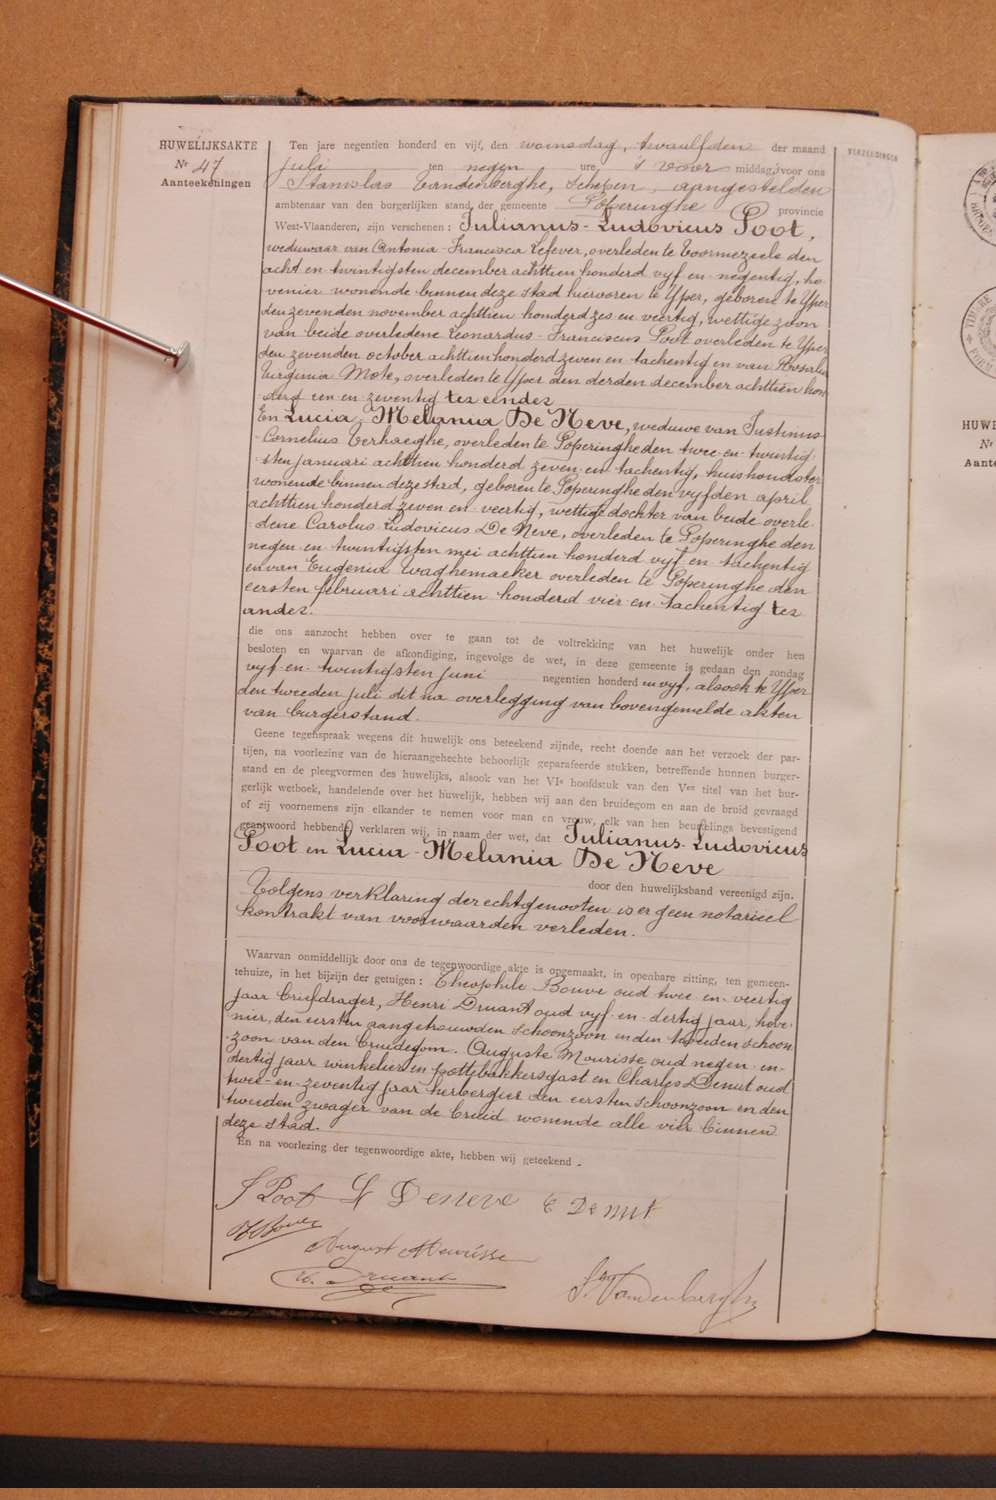 HUWELIJKSAKTE
Nr 47
Aanteekeningen
Ten jare negentien honderd en vijf, den woensdag, twaalfden der maand
juli ten negen ure, 's voor middag, voor ons
Stanislas Vandenberghe, schepen, aangestelden
ambtenaar van den burgerlijken stand der gemeente Poperinghe provincie
West-Vlaanderen, zijn verschenen: Julianus-Ludovicus Poot,
weduwaar van Antonia-Francisca Lefever, overleden te Voormezeele den
acht en twintigsten december achttien honderd vyf en negentig, ho-
venier wonende binnen deze stad hiervoren te Yper, geboren te Yper
den zevenden november achttien honderd zes en veertig, wettige zoon
van beide overledene Leonardus-Franciscus Poot overleden te Yper
den zevenden october achttien honderd zeven en tachentig en van Rosalia
Virginia Mote, overleden te Yper den derden december achttien hon-
derd een en zeventig ter eender
En Lucia-Melania De Neve, weduwe van Justinus-
Cornelius Verhaeghe, overleden te Poperinghe den twee-en-twintig-
sten januari achttien honderd zeven en tachentig, huishoudster
wonende binnen deze stad, geboren te Poperinghe den vyfden april
achttien honderd zeven en veertig, wettige dochter van beide overle-
dene Carolus-Ludovicus De Neve, overleden te Poperinghe den
negen en twintigsten mei achttien honderd vyf en tachentig
en van Eugenia Waghemaeker overleden te Poperinghe den
eersten februari achttien honderd vier en tachentig ter
ander.
die ons aanzocht hebben over te gaan tot de voltrekking van het huwelijk onder hen
besloten en waarvan de afkondiging, ingevolge de wet, in deze gemeente is gedaan den zondag
vyf-en-twintigsten juni negentien honderd en vyf, alsook te Yper
den tweeden juli dit na overlegging van bovengemelde akten
van burgerstand.
Geene tegenspraak wegens dit huwelijk ons beteekend zijnde, recht doende aan het verzoek der par-
tijen, na voorlezing van de hieraangehechte behoorlijk geparafeerde stukken, betreffende hunnen burger-
stand en de pleegvormen des huwelijks, alsook van het VIe hoofdstuk van den Ven titel van het bur-
gerlijk wetboek, handelende over het huwelijk, hebben wij aan den bruidegom en aan de bruid gevraagd
of zij voornemens zijn elkander te nemen voor man en vrouw, elk van hen beurtelings bevestigend
geantwoord hebbende verklaren wij, in naam der wet, dat Julianus-Ludovicus
Poot en Lucia-Melania De Neve
door den huwelijksband vereenigd zijn.
Volgens verklaring der echtgenooten is er geen notarieel
kontrakt van voorwaarden verleden.
Waarvan onmiddellijk door ons de tegenwoordige akte is opgemaakt, in openbare zitting, ten gemeen-
tehuize, in het bijzijn der getuigen: Theophile Bouve oud twee en veertig
jaar briefdrager, Henri Druant oud vyf-en-dertig jaar, hove-
nier, den eersten aangetrouwden schoonzoon en den tweeden schoon-
zoon van den bruidegom. Auguste Mourisse oud negen-en-
dertig jaar winkelier en pottebakkersgast en Charles Demut oud
twee-en-zeventig jaar herbergier den eersten schoonzoon en den
tweeden zwager van de bruid wonende alle vier binnen
deze stad.
En na voorlezing der tegenwoordige akte, hebben wij geteekend.
J Poot L Deneve C Demut
August Meurisse
H. Druant
St Vandenberghe
VERZENDINGEN